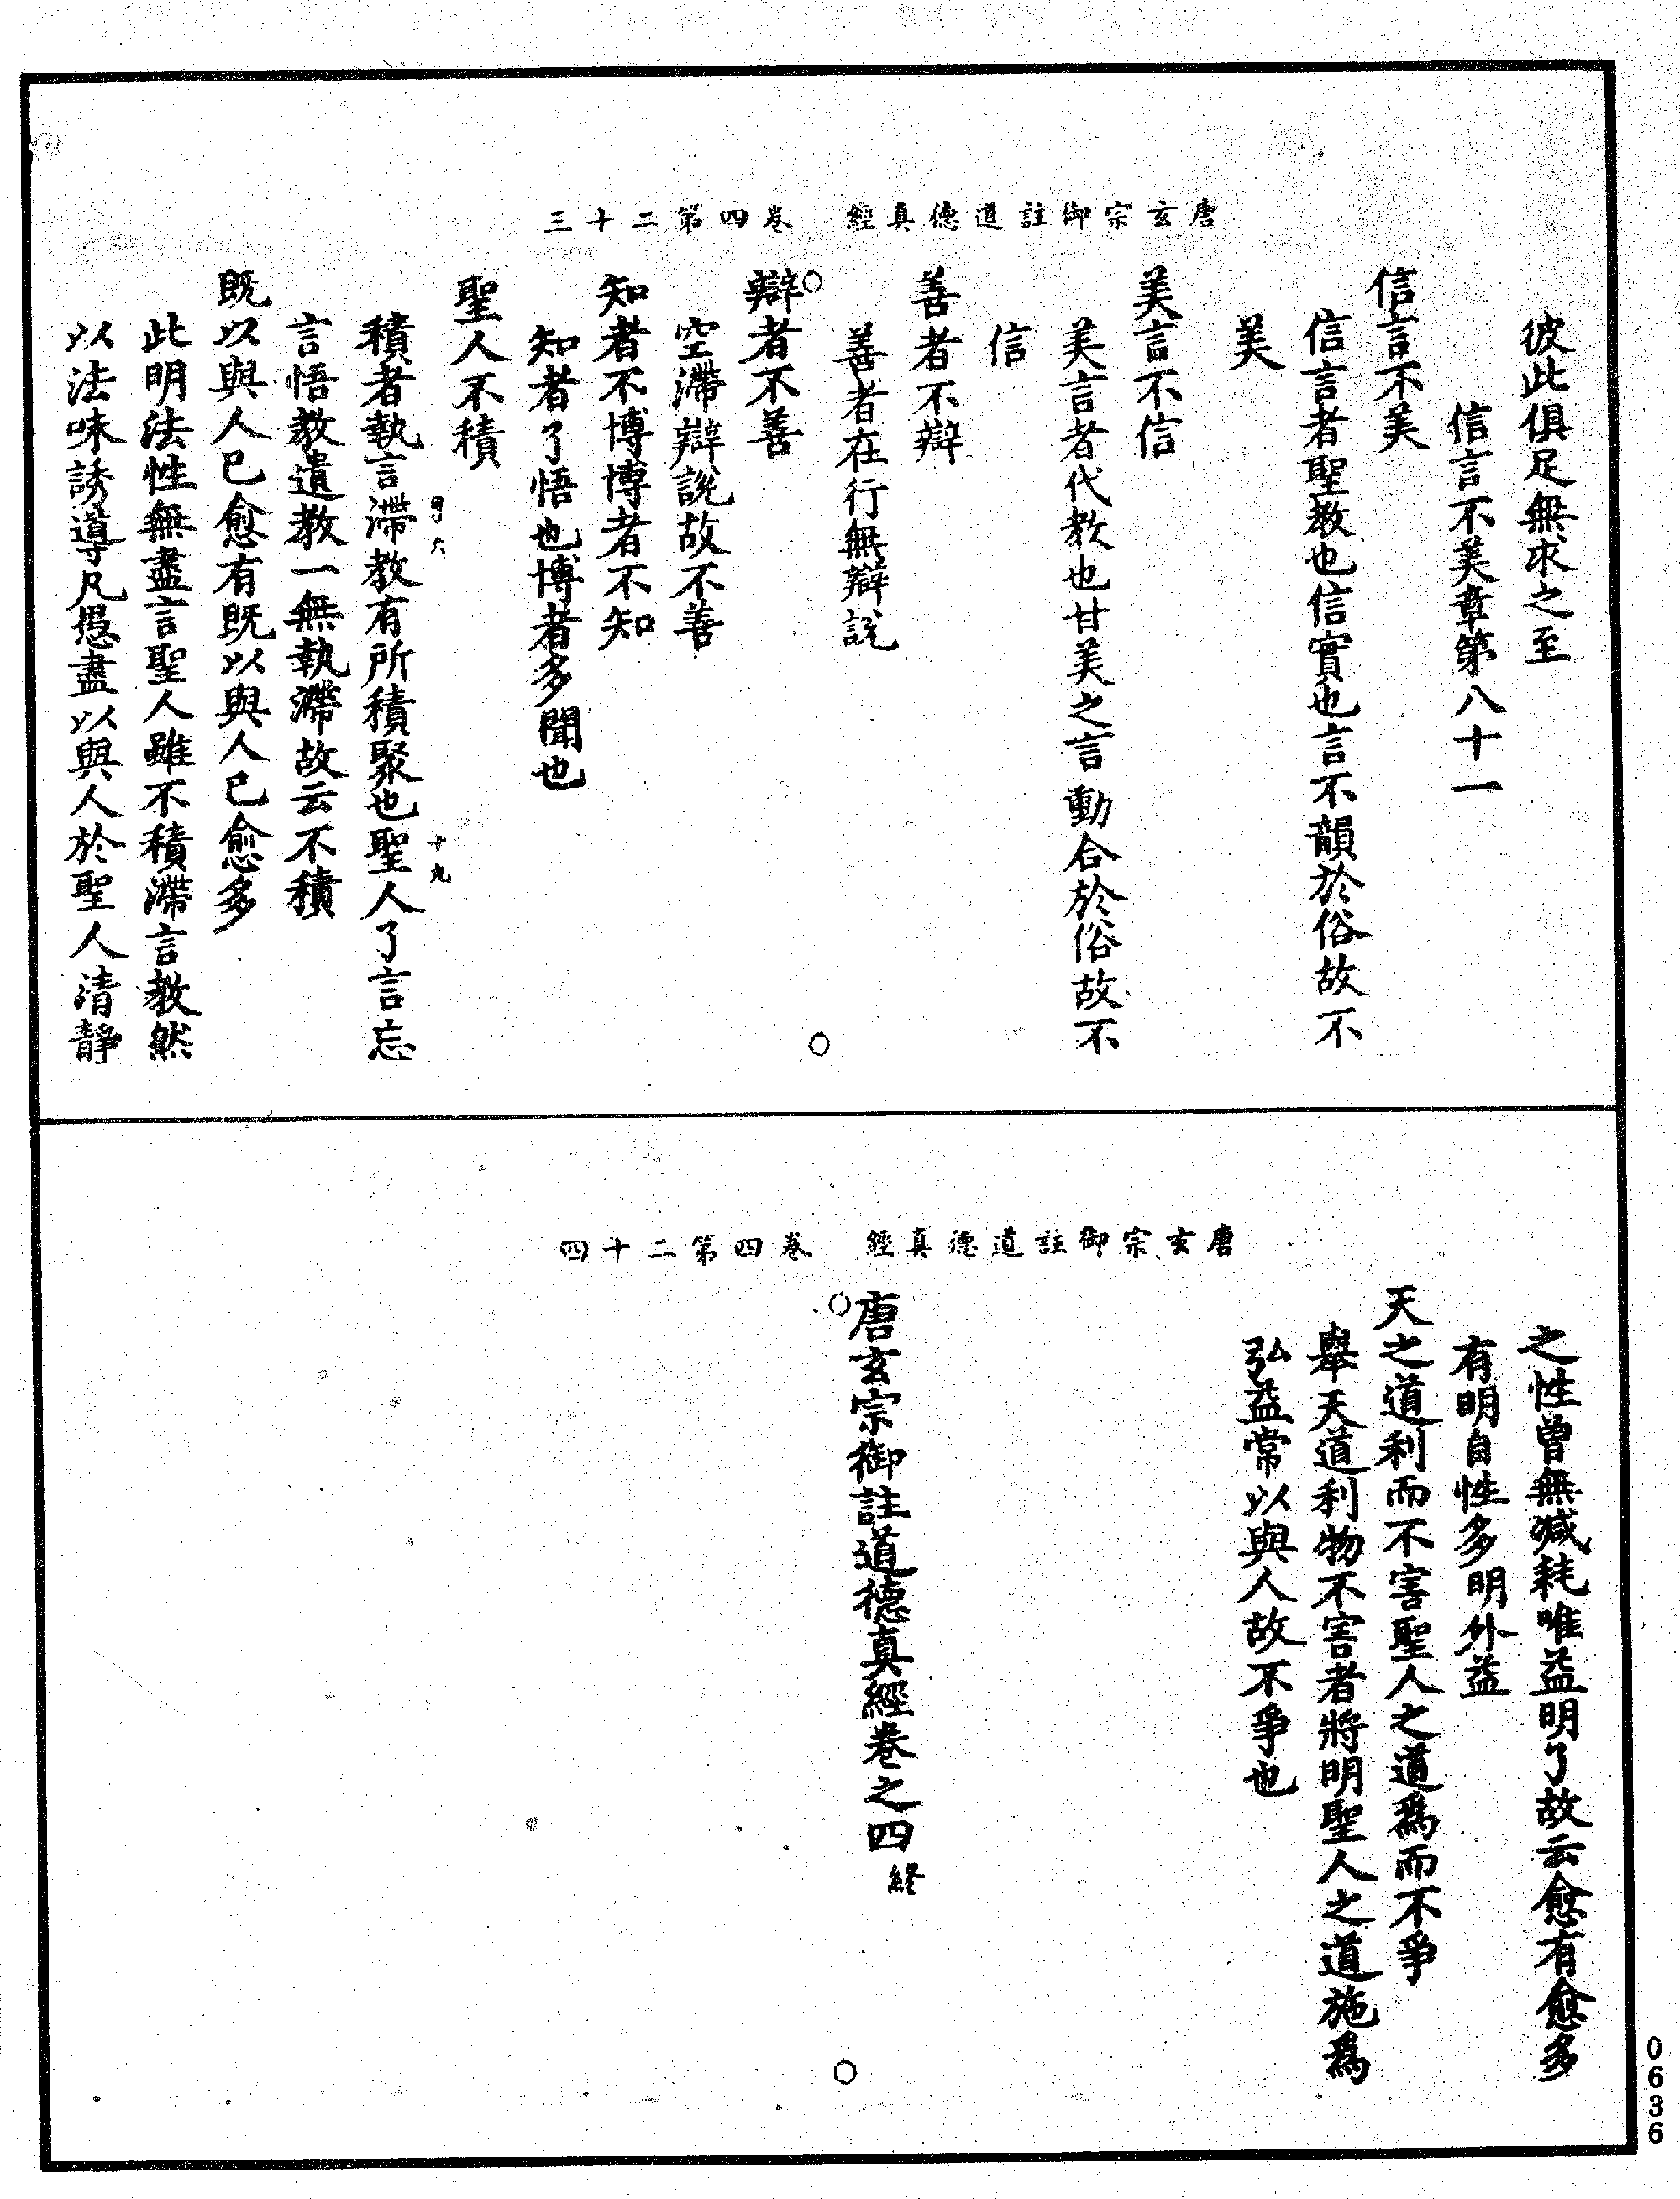 唐玄宗御註道德真經　卷四第二十三
彼此俱足無求之至
信言不美章第八十一
信言不美
信言者聖教也信實也言不韻於俗故不
美
美言不信
美言者代教也甘美之言動合於俗故不
信
善者不辯
善者在行無辯說
辯者不善
空滯辯說故不善
知者不博博者不知
知者了悟也博者多聞也
聖人不積
十九
積者執言滯教有所積聚也聖人了言忘
言悟教遺教一無執滯故云不積
既以與人已愈有既以與人已愈多
此明法性無盡言聖人雖不積滯言教然
以法味誘導凡愚盡以與人於聖人清靜
唐玄宗御註道德真經　卷四第二十四
之性曾無減耗唯益明了故云愈有愈多
有明自性多明外益
天之道利而不害聖人之道為而不爭
舉天道利物不害者將明聖人之道施為
弘益常以與人故不爭也
唐玄宗御註道德真經卷之四終
0636